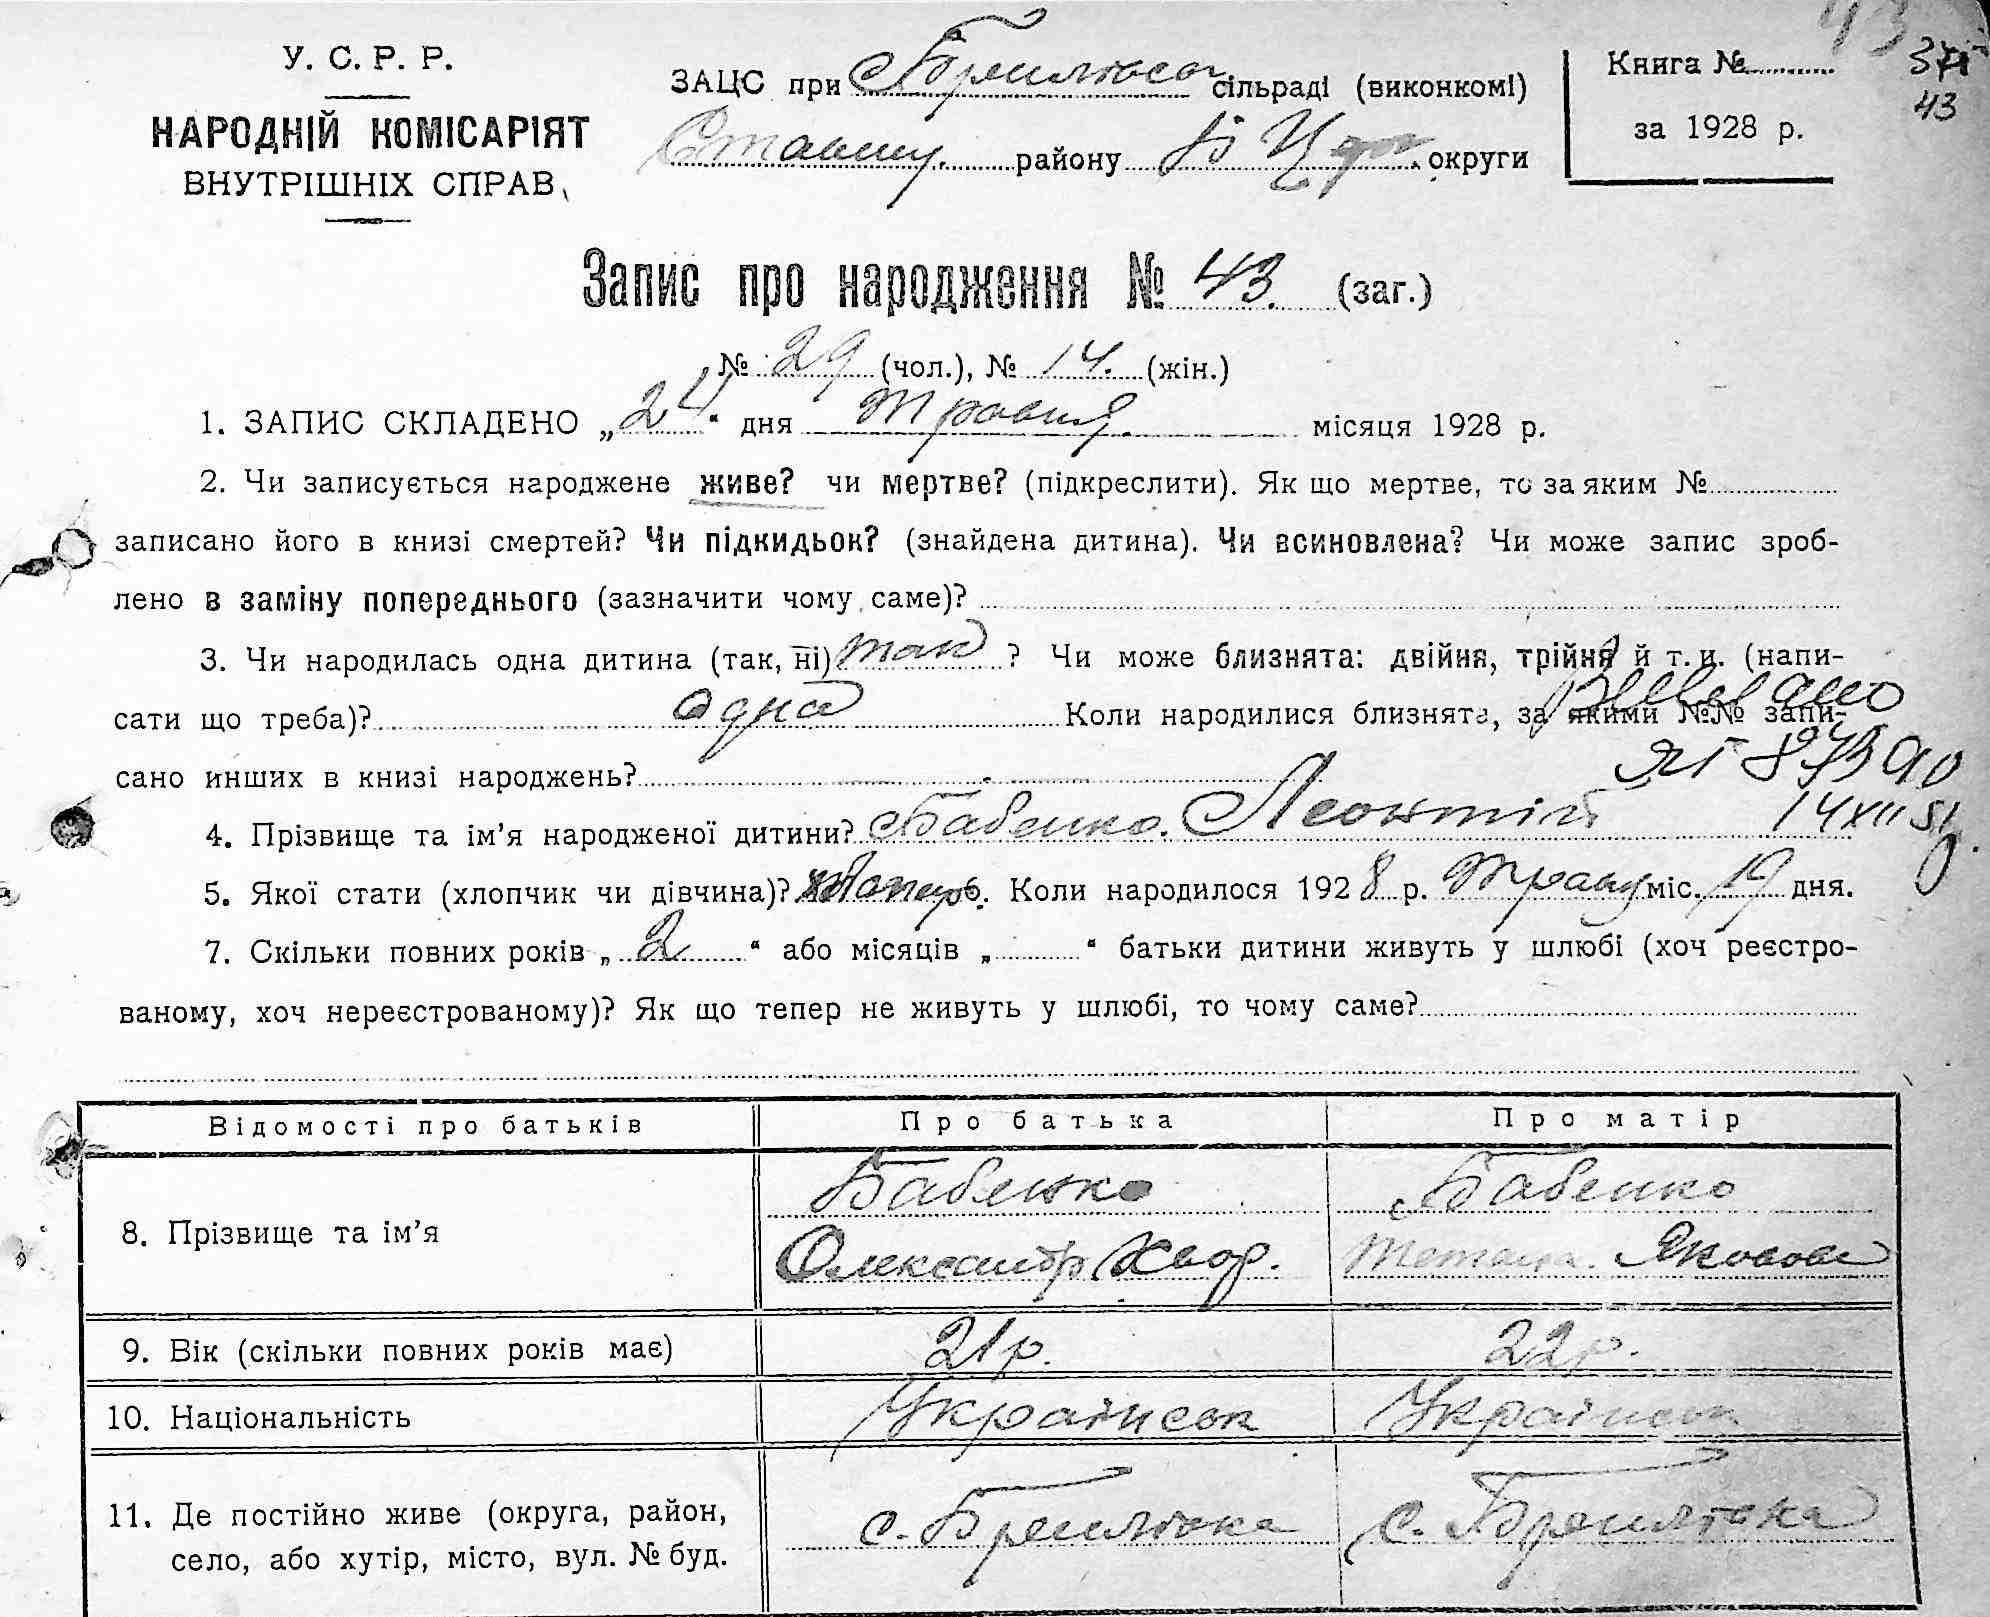 43
У. С. Р. Р.
НАРОДНІЙ КОМІСАРІЯТ
ВНУТРІШНІХ СПРАВ
ЗАЦС при сільраді (виконкомі)
Ставищ. району Б Церк. округи
Книга №
за 1928 р.
371
43
Запис про народження № 43. (заг.)
№ 29 (чол.), № 14. (жін.)
1. ЗАПИС СКЛАДЕНО „24“ дня травня місяця 1928 р.
2. Чи записується народжене живе? чи мертве? (підкреслити). Як що мертве, то за яким №
записано його в книзі смертей? Чи підкидьок? (знайдена дитина). Чи всиновлена? Чи може запис зроб-
лено в заміну попереднього (зазначити чому саме)?
3. Чи народилась одна дитина (так, ні) так ? Чи може близнята: двійня, трійня й т. и. (напи-
сати що треба)? одна Коли народилися близнята, за якими №№ запи-
сано инших в книзі народжень?
4. Прізвище та ім’я народженої дитини? Бабенко Леонтій
14 XII 51
5. Якої стати (хлопчик чи дівчина)? Коли народилося 1928 р. травня міс. 19 дня.
7. Скільки повних років „2“ або місяців „ “ батьки дитини живуть у шлюбі (хоч реєстро-
ваному, хоч нереєстрованому)? Як що тепер не живуть у шлюбі, то чому саме?
Відомості про батьків Про батька Про матір
8. Прізвище та ім’я
Бабенко Бабенко
Олександр Хвор. Тетяна Яковов
9. Вік (скільки повних років має) 21 р. 22 р.
10. Національність Українськ Українськ
11. Де постійно живе (округа, район,
село, або хутір, місто, вул. № буд.
с. с.